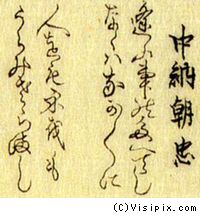 中納朝忠
逢ふ事のたえてし
なくハなか〱に
人をも身をも
うらみさらまし
(C)Visipix.com